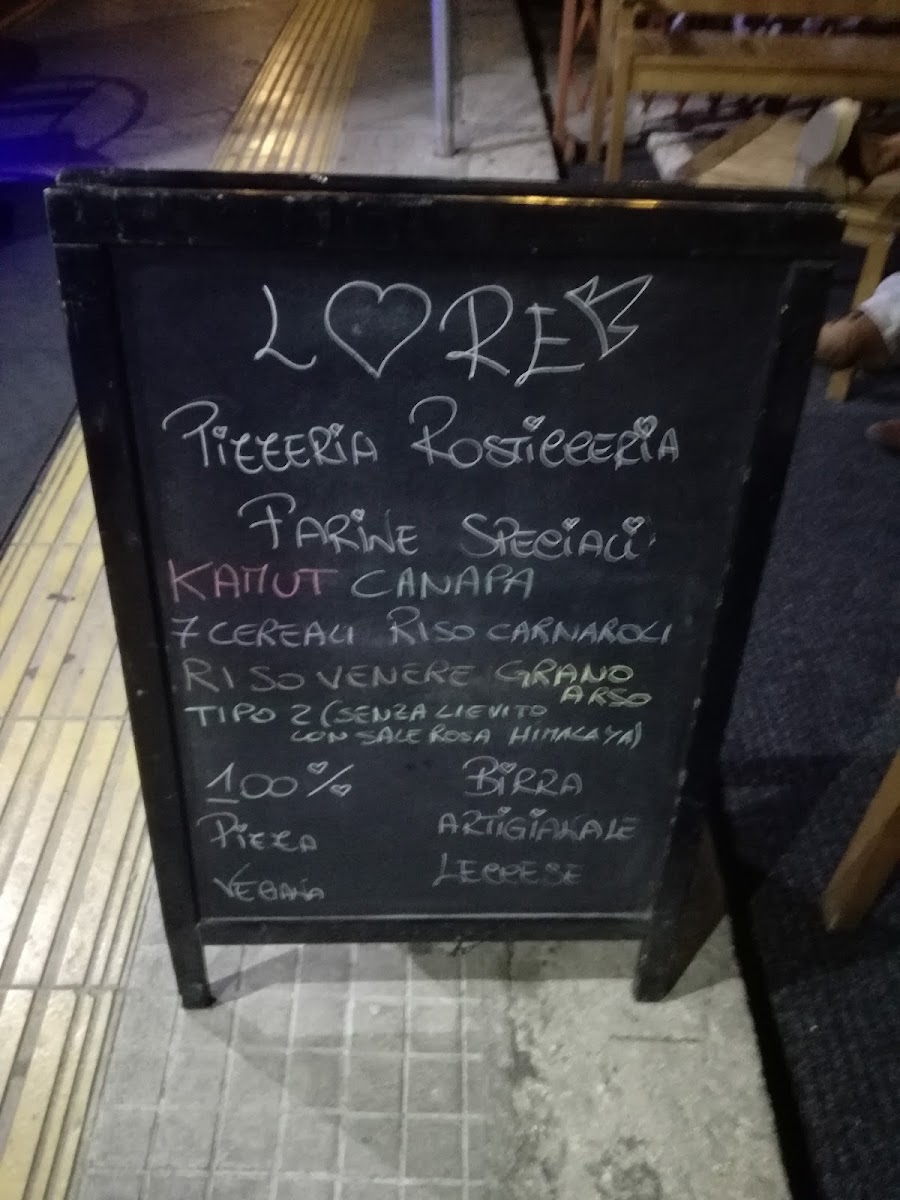 L♡RE
PIZZERIA ROSTICCERIA
FARINE SPECIALI
KAMUT CANAPA
7 CEREALI RISO CARNAROLI
RISO VENERE GRANO ARSO
TIPO 2 (SENZA LIEVITO
CON SALE ROSA HIMALAYA)
100% BIRRA
PIZZA ARTIGIANALE
VEGANA LECCESE